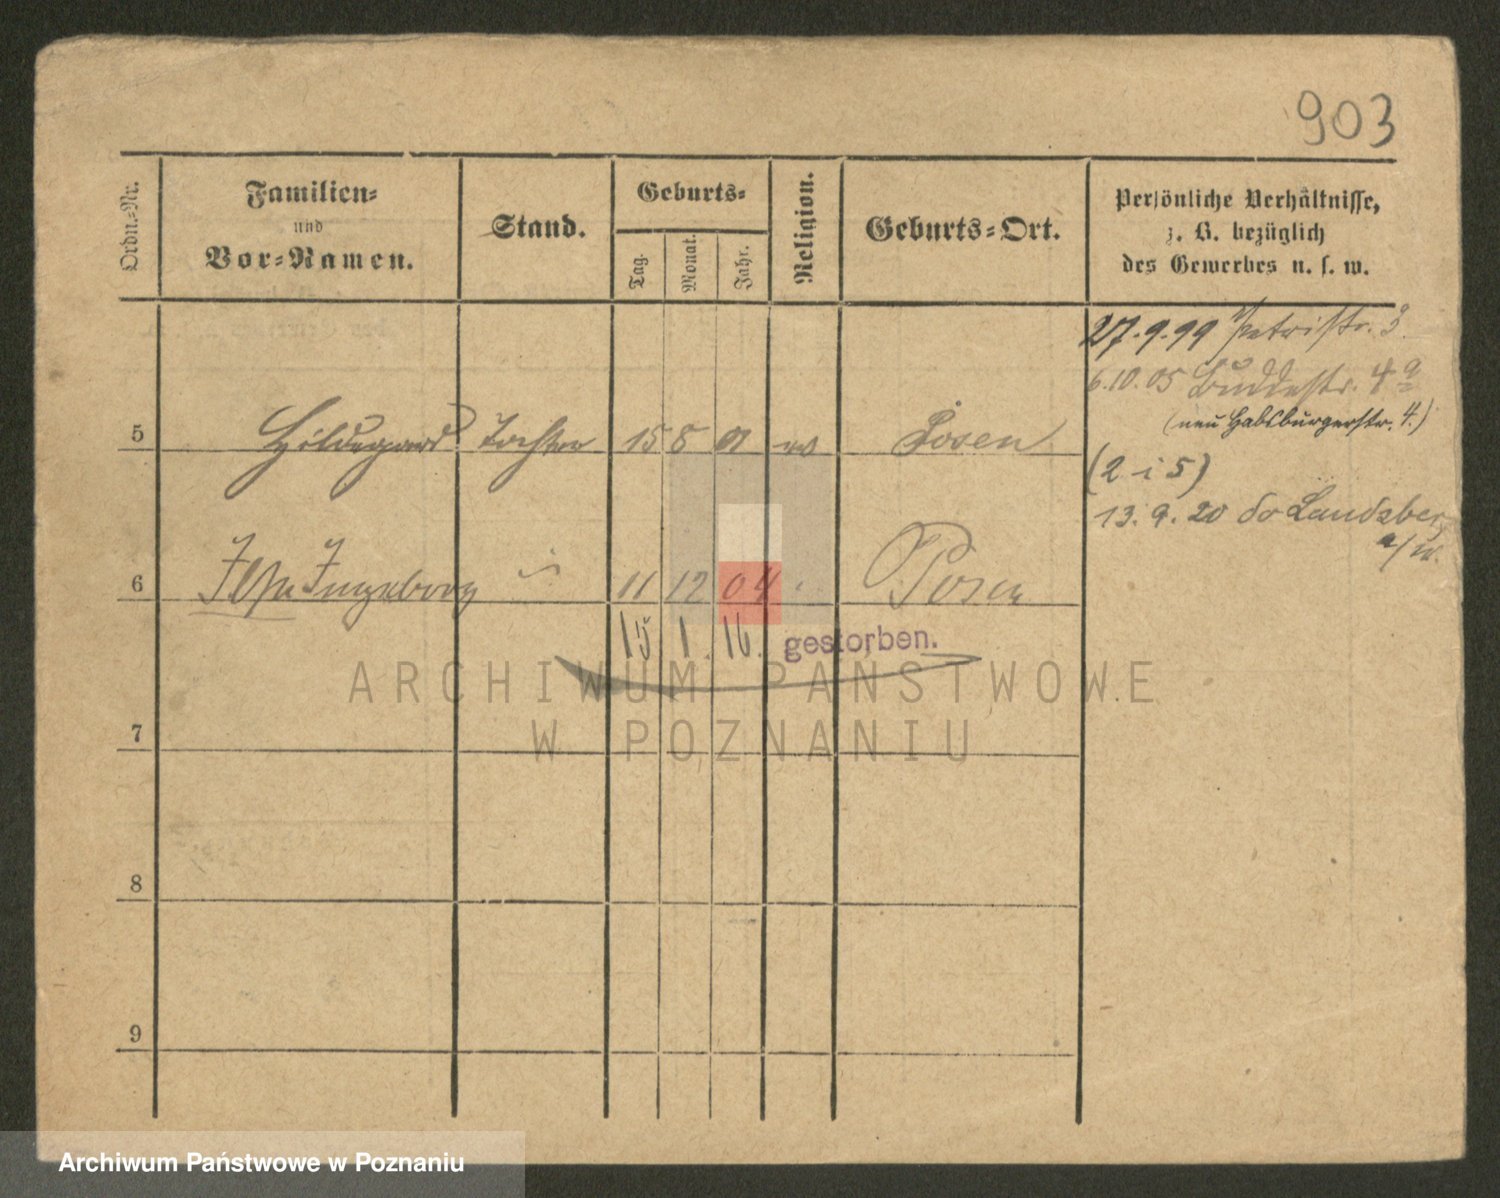 903
Ordn.-Nr.
Familien-
und
Vor-Namen.
Stand.
Geburts-
Tag.
Monat.
Jahr.
Religion.
Geburts-Ort.
Persönliche Verhältnisse,
z. B. bezüglich
des Gewerbes u. s. w.
27.9.99 Petristr. 3
6.10.05 Buddestr. 4a
(neu Habsburgerstr. 4.)
5 Hildegard Tochter 15 8 01 ev Posen
(2 i 5)
13.9.20 do Landsberg
a/W.
6 Ilse Ingeborg 11 12 04 Posen
15 1. 16. gestorben.
ARCHIWUM PAŃSTWOWE
W POZNANIU
7
8
9
Archiwum Państwowe w Poznaniu